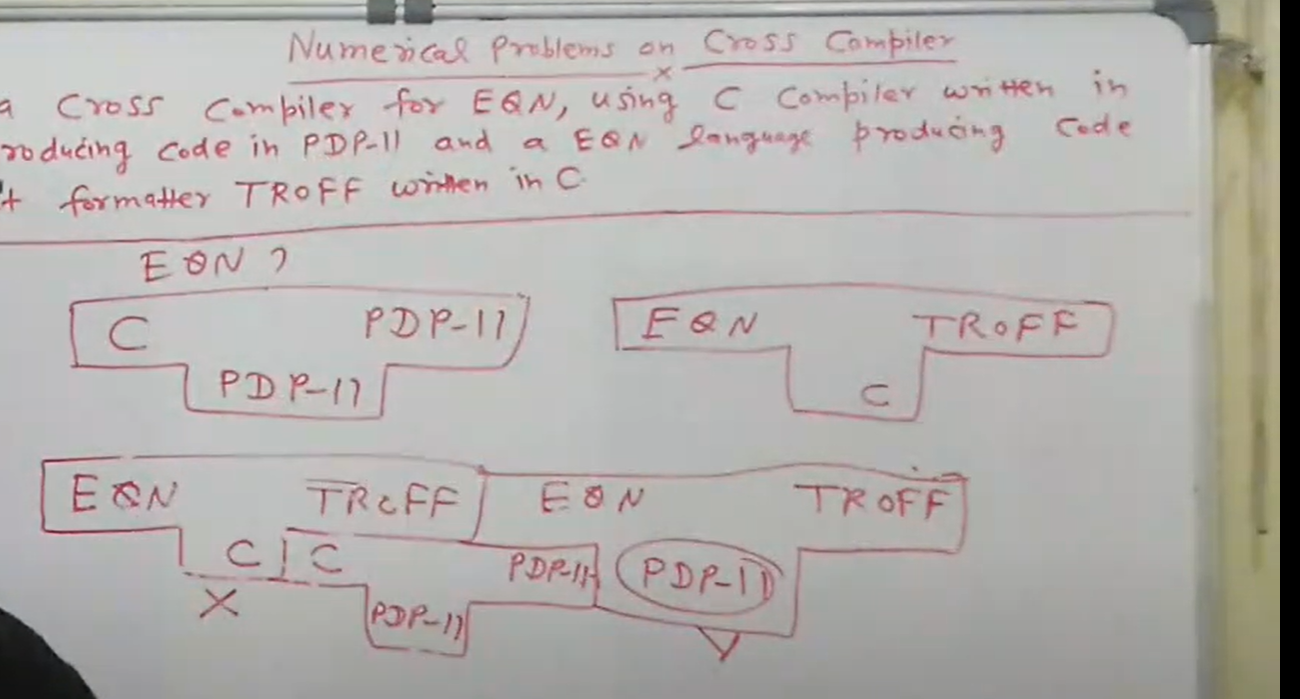 Numerical Problems on Cross Compiler
x
a Cross Compiler for EQN, using C Compiler written in
roducing code in PDP-11 and a EQN language producing code
t formatter TROFF written in C.
EQN ?
C PDP-11 EQN TROFF
PDP-11 C
EQN TROFF EQN TROFF
C C PDP-11 PDP-11
X PDP-11